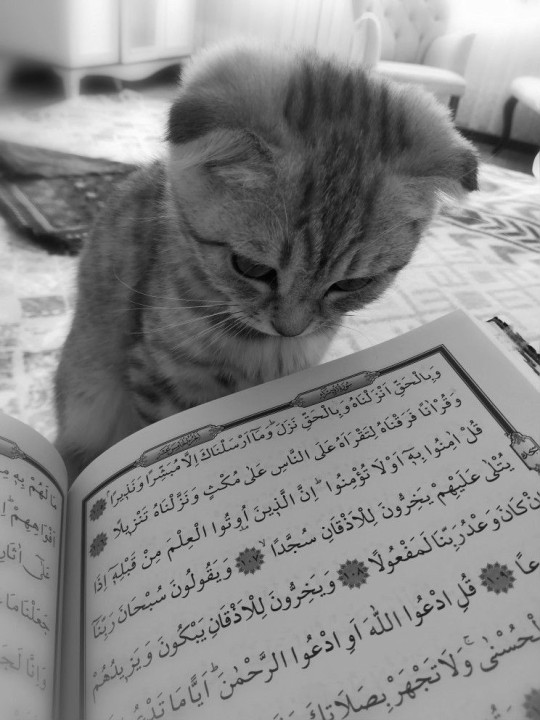 وَبِالْحَقِّ اَنْزَلْنَاهُ وَبِالْحَقِّ نَزَلَۜ وَمَٓا اَرْسَلْنَاكَ اِلَّا مُبَشِّرًا وَنَذِيرًاۢ
وَقُرْاٰنًا فَرَقْنَاهُ لِتَقْرَاَهُ عَلَى النَّاسِ عَلٰى مُكْثٍ وَنَزَّلْنَاهُ تَنْزِيلًا
قُلْ اٰمِنُوا بِهِٓ اَوْ لَا تُؤْمِنُواۜ اِنَّ الَّذِينَ اُوتُوا الْعِلْمَ مِنْ قَبْلِهِٓ اِذَا
يُتْلٰى عَلَيْهِمْ يَخِرُّونَ لِلْاَذْقَانِ سُجَّدًا ١٠٧ وَيَقُولُونَ سُبْحَانَ رَبِّنَٓا
اِنْ كَانَ وَعْدُ رَبِّنَا لَمَفْعُولًا ١٠٨ وَيَخِرُّونَ لِلْاَذْقَانِ يَبْكُونَ وَيَزِيدُهُمْ
عًا ١٠٩ قُلِ ادْعُوا اللّٰهَ اَوِ ادْعُوا الرَّحْمٰنَۜ اَيًّا مَا
لْحُسْنٰىۚ وَلَا تَجْهَرْ بِصَلَاتِكَ
مَا لَهُمْ بِهِ
اَفْوَاهِهِمْۜ
عَلٰٓى
جَعَلْنَا مَا
وَاِنَّا